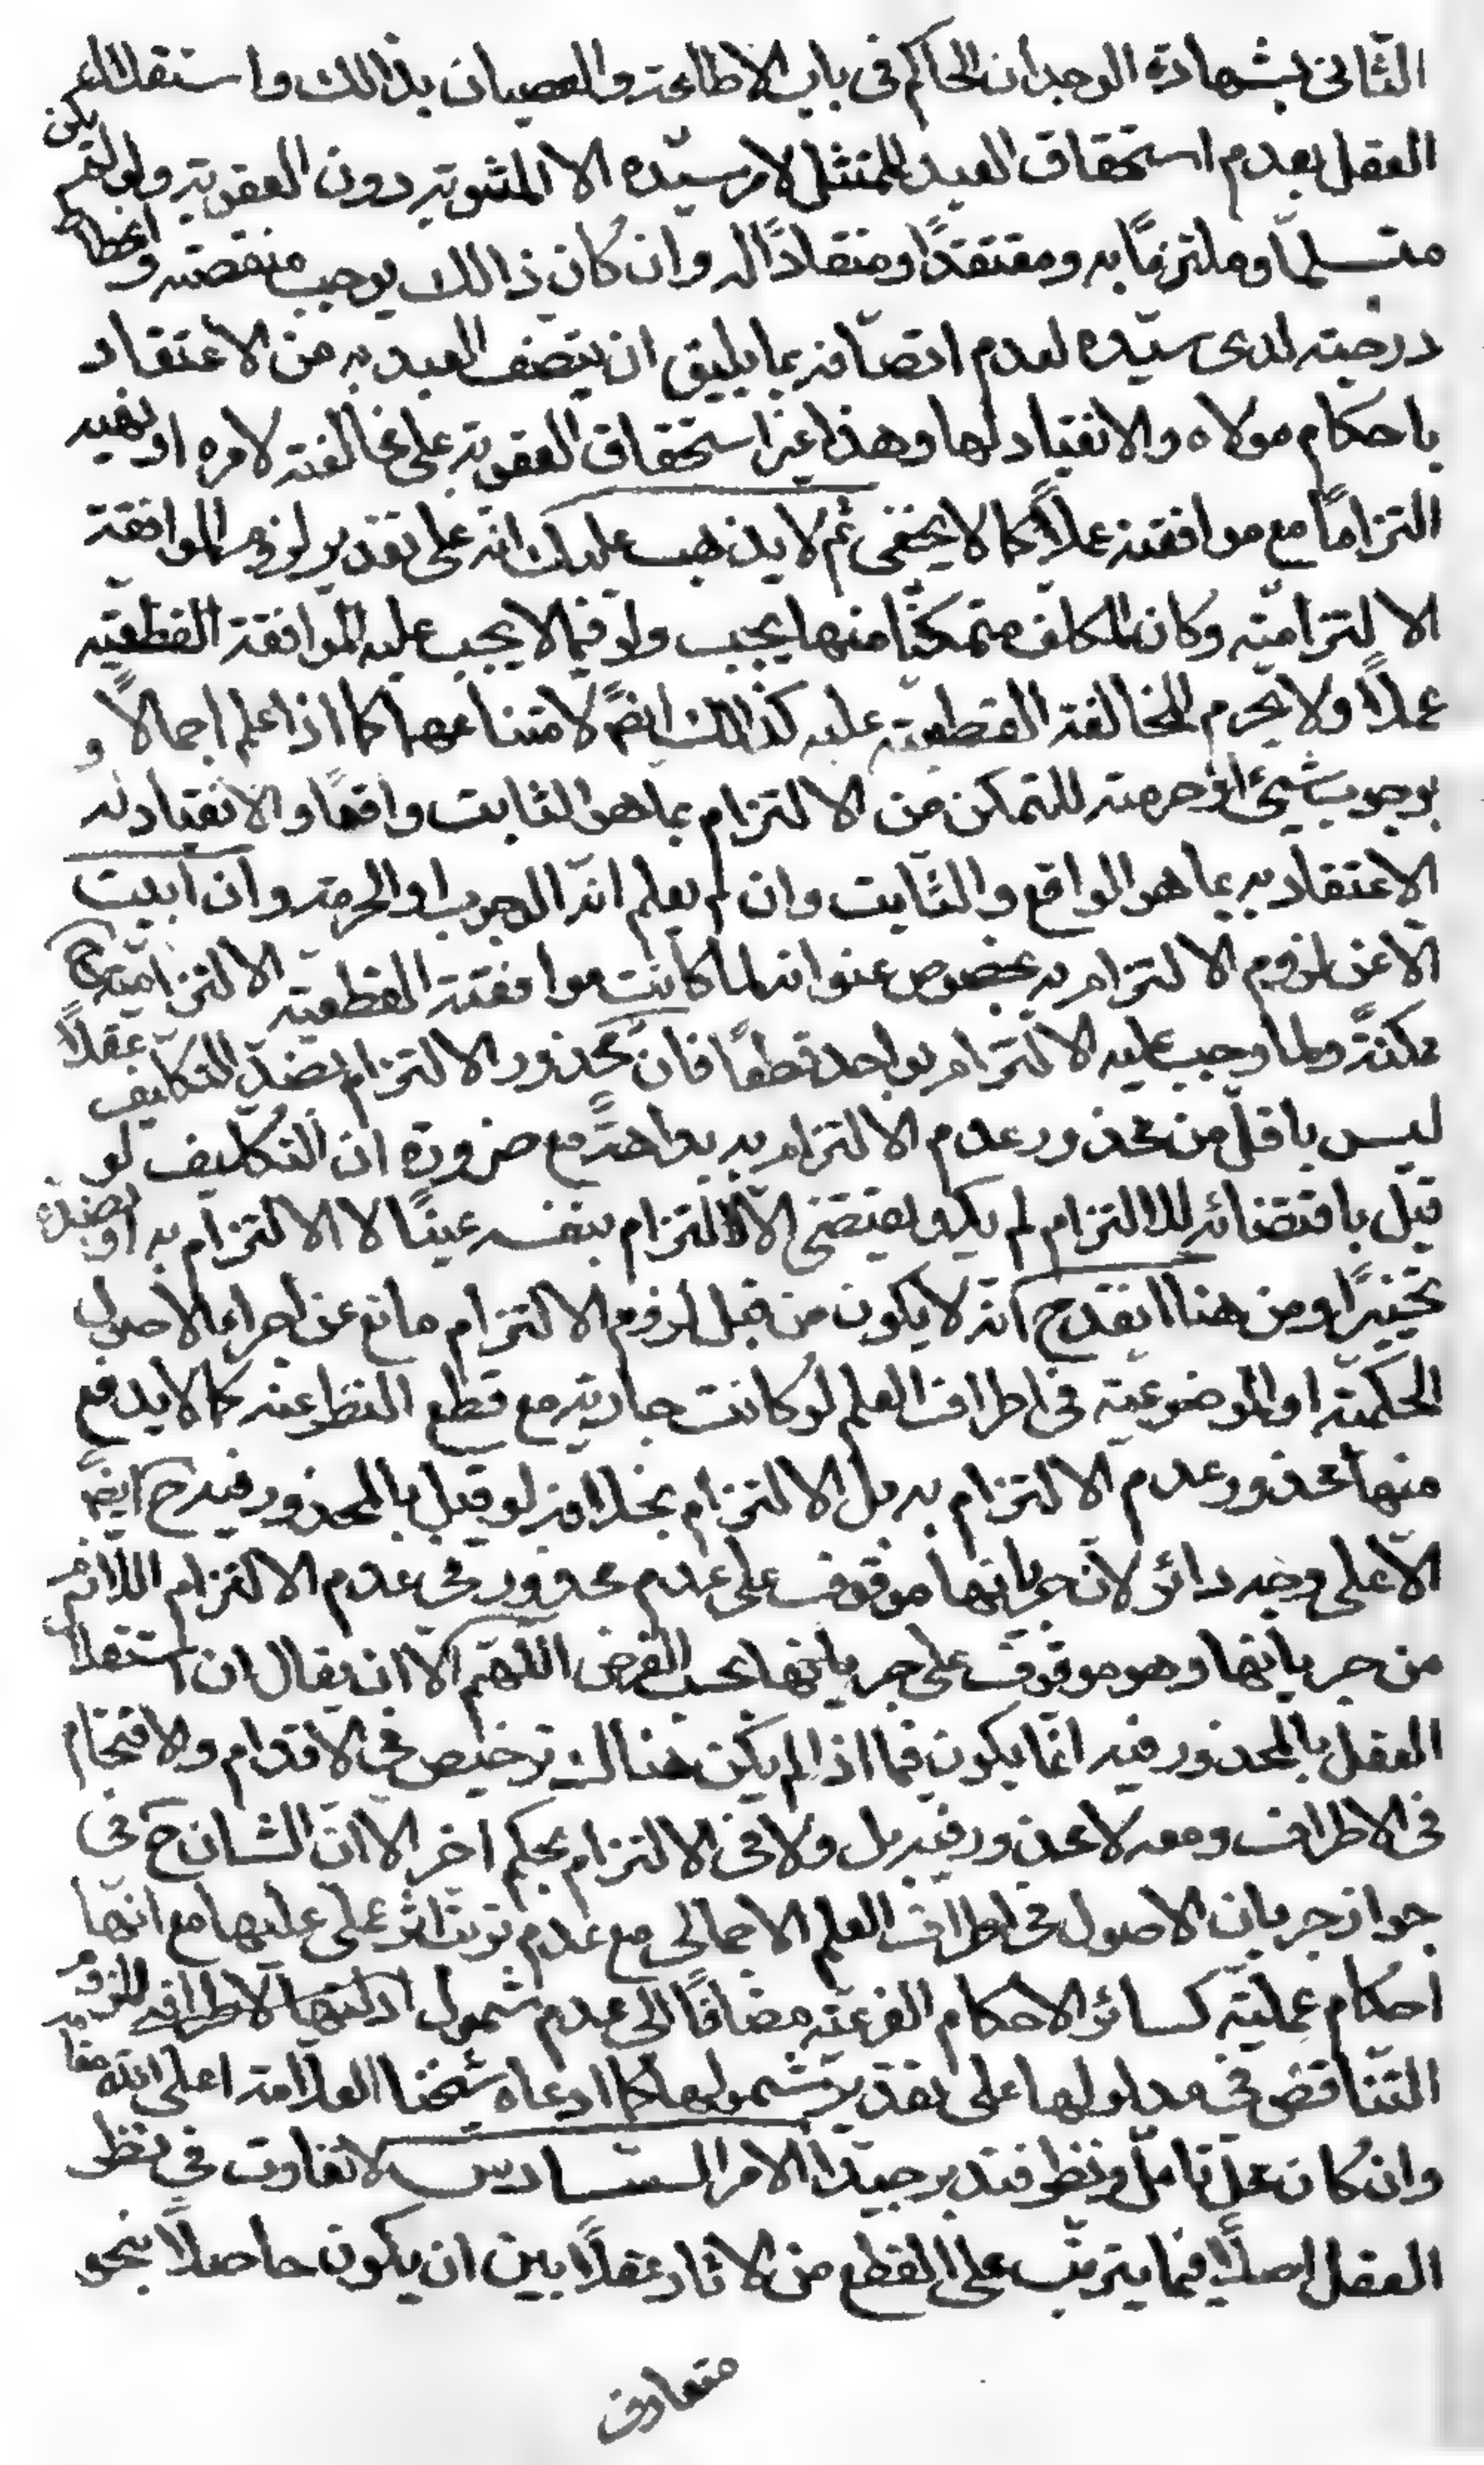 الثانى بشهادة الوجدان الحاكم فى باب الاطاعة والعصيان بذالك واستقلال
العقل بعدم استحقاق العبد الممتثل لامر سيّده الا المثوبة دون العقوبة ولو لم يكن
متسلمًا وملتزمًا به ومعتقدًا ومنقادًا له وان كان ذالك يوجب منقصته وانحطاط
درجته لدى سيّده لعدم اتصافه بما يليق ان يتصف العبد به من الاعتقاد
باحكام مولاه والانقياد لها وهذا غير استحقاق العقوبة على مخالفته لامره او نهيه
التزامًا مع موافقته عملًا كما لا يخفى ثم لا يذهب عليك انه على تقدير لزوم الموافقة
الالتزاميّة وكان المكلف متمكنًا منها يجب ولو فيما لا يجب عليه الموافقة القطعيّة
عملًا ولا يحرم المخالفة القطعيّة عليه كذالك ايضً لامتناعهما كما اذا علم اجمالًا و
بوجوب شيئ او حرمته للتمكن من الالتزام بما هو الثابت واقعًا والانقياد له
الاعتقاد به بما هو الواقع والثابت وان لم يعلم انّه الوجوب او الحرمة وان ابيت
الّا عن لزوم الالتزام به بخصوص عنوانه لما كانت موافقته القطعيّة الالتزاميّة ح
ممكنةً ولما وجب عليه الالتزام بواحد قطعًا فان محذور الالتزام بضدّ التكليف عقلًا
ليس باقلّ من محذور عدم الالتزام به بداهةً مع ضرورة ان التكليف لو
قيل باقتضائه للالتزام لم يكد يقتضى الّا الالتزام بنفسه عينًا لا الالتزام به او بضدّه
تخييرًا ومن هنا انقدح انّه لا يكون من قبل لزوم الالتزام مانع عن اجراء الاصول
الحكميّة او الموضوعيّة فى اطراف العلم لو كانت جارية مع قطع النظر عنه كما لا يدفع
منها محذور عدم الالتزام به بل الالتزام بخلافه لو قيل بالمحذور فيه ح ايضً
الّا على وجه دائر لانّ جريانها موقوف على عدم محذور فى عدم الالتزام اللازم
من جريانها وهو موقوف على جريانها بحسب الفرض اللّهم الّا ان يقال ان استقلال
العقل بالمحذور فيه انّما يكون فيما اذا لم يكن هناك ترخيص فى الاقدام والاقتحام
فى الاطراف ومعه لا محذور فيه بل ولا فى الالتزام بحكم اخر الا ان الشان ح فى
جواز جريان الاصول فى اطراف العلم الاجمالى مع عدم ترتب اثر عملى عليها مع انّها
احكام عمليّة كسائر الاحكام الفرعيّة مضافًا الى عدم شمول ادلتها لاطرافه للزوم
التناقض فى مدلولها على تقدير شمولها كما ادعاه شيخنا العلامة اعلى الله مقامه
وان كان محلّ تامل ونظر فتدبر جيّدًا الامر السادس لا تفاوت فى نظر
العقل اصلًا فيما يترتب على القطع من الاثار عقلًا بين ان يكون حاصلًا بنحو
متعارف